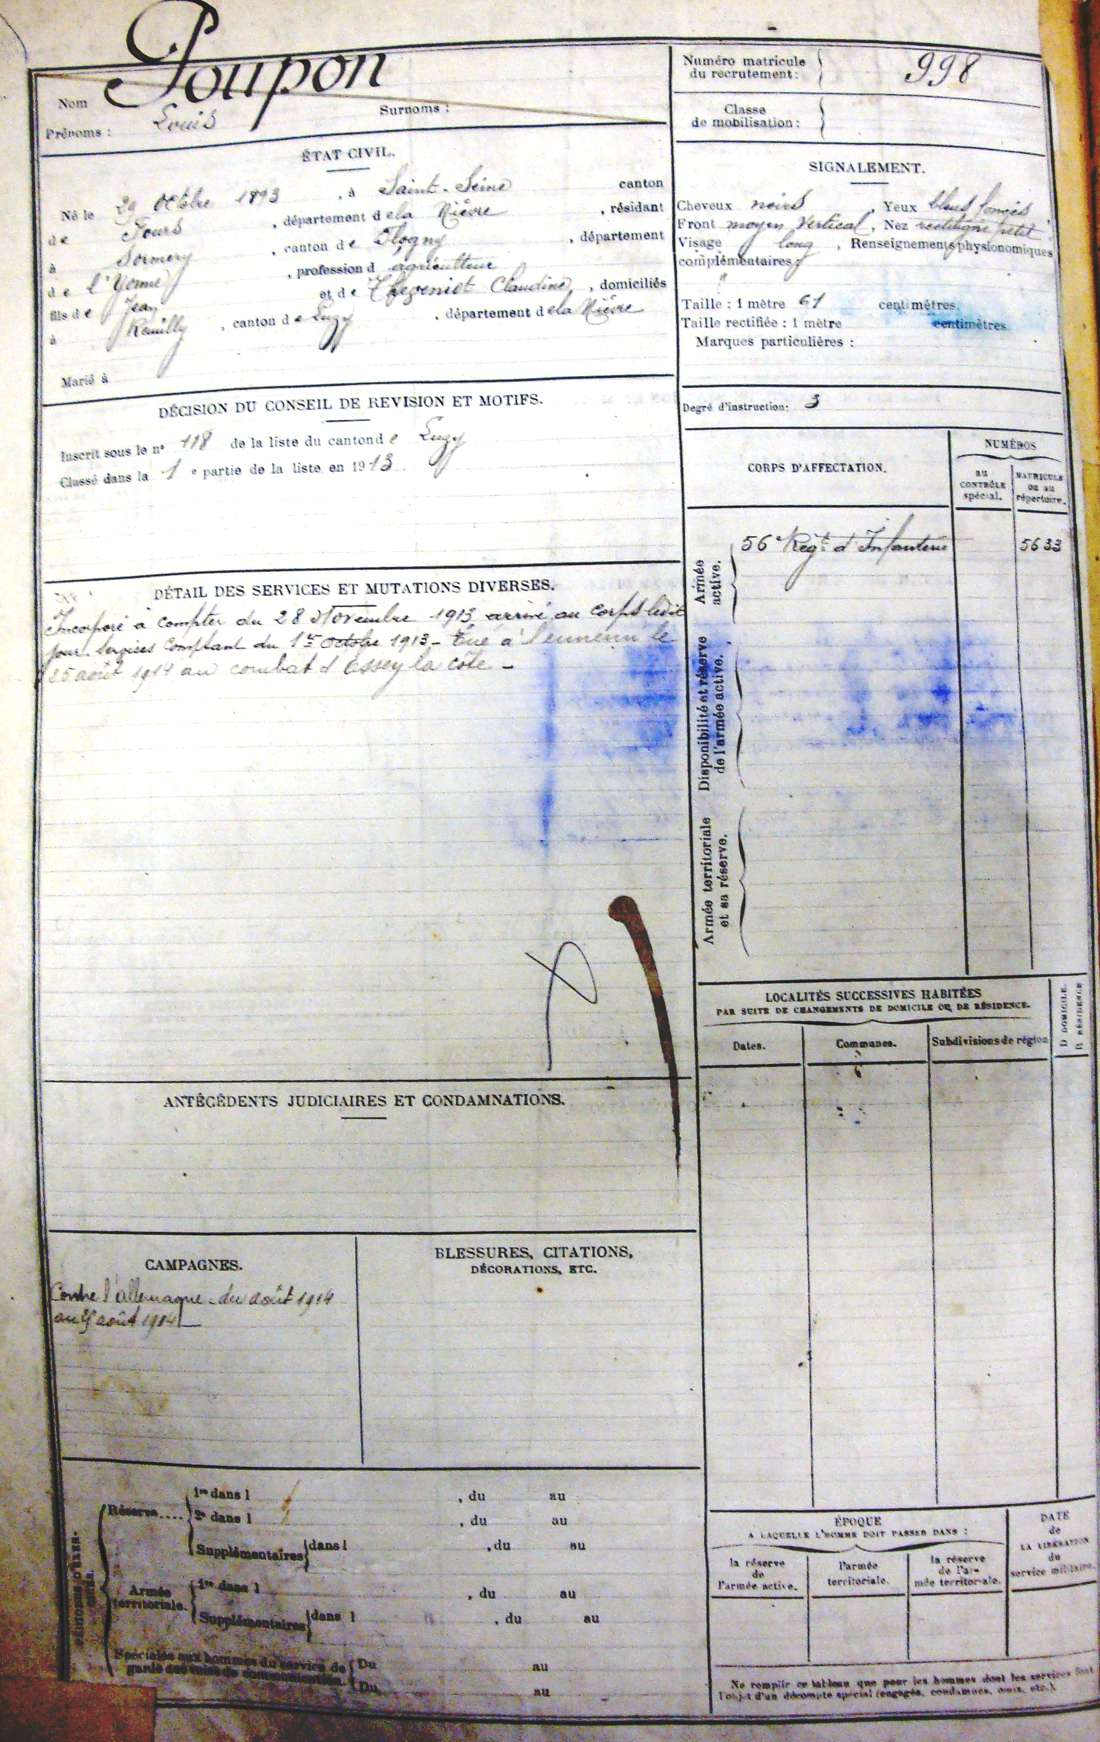 Nom Poupon
Prénoms : Louis Surnoms :
Numéro matricule
du recrutement : 998
Classe
de mobilisation :
ÉTAT CIVIL.
Né le 29 Octobre 1893, à Saint-Seine canton
de Fours, département de la Nièvre, résidant
à Sormery, canton de Flogny, département
de l'Yonne, profession d agriculteur
fils de Jean et de Thevenict Claudine, domiciliés
à Remilly, canton de Luzy, département de la Nièvre
Marié à
SIGNALEMENT.
Cheveux noirs, Yeux bleus foncés
Front moyen Vertical, Nez rectiligne petit
Visage long, Renseignements physionomiques
complémentaires :
Taille : 1 mètre 61 centimètres.
Taille rectifiée : 1 mètre centimètres
Marques particulières :
Degré d'instruction : 3
DÉCISION DU CONSEIL DE REVISION ET MOTIFS.
Inscrit sous le n° 118 de la liste du canton de Luzy
Classé dans la 1e partie de la liste en 1913.
CORPS D'AFFECTATION.
NUMÉROS
au
CONTRÔLE
spécial.
MATRICULE
ou au
répertoire.
Armée
active.
56e Regt d'Infanterie 5633
Disponibilité et réserve
de l'armée active.
Armée territoriale
et sa réserve.
DÉTAIL DES SERVICES ET MUTATIONS DIVERSES.
Incorporé à compter du 28 Novembre 1913 arrivé au corps ledit
jour. Services comptant du 1er Octobre 1913 - Tué à l'ennemi le
25 août 1914 au combat d'Essey la côte -
LOCALITÉS SUCCESSIVES HABITÉES
PAR SUITE DE CHANGEMENTS DE DOMICILE OU DE RÉSIDENCE.
Dates.
Communes.
Subdivisions de région
D DOMICILE.
R RÉSIDENCE
ANTÉCÉDENTS JUDICIAIRES ET CONDAMNATIONS.
CAMPAGNES.
Contre l'allemagne - du août 1914
au 25 août 1914
BLESSURES, CITATIONS,
DÉCORATIONS, ETC.
Réserve....
1re dans l , du au
2e dans l , du au
Supplémentaires dans l , du au
Armée
territoriale.
1re dans l , du au
Supplémentaires dans l , du au
Spéciales aux hommes du service de
garde des voies de communication.
Du au
Du au
ÉPOQUE
A LAQUELLE L'HOMME DOIT PASSER DANS :
la réserve
de
l'armée active.
l'armée
territoriale.
la réserve
de l'ar-
mée territoriale.
DATE
de
LA LIBÉRATION
du
service militaire.
Ne remplir ce tableau que pour les hommes dont les services font
l'objet d'un décompte spécial (engagés, condamnés, omis, etc.).